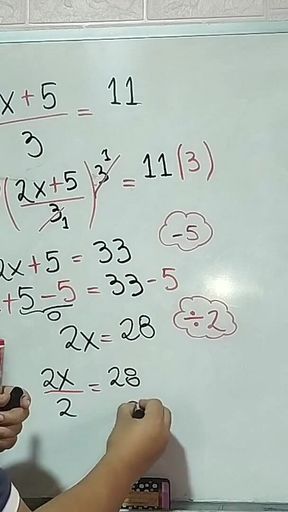 x + 5 / 3 = 11
(2x + 5 / 3 1) 3 1 = 11 (3)
2x + 5 = 33
-5
+ 5 - 5 = 33 - 5
0
÷ 2
2x = 28
2x / 2 = 28